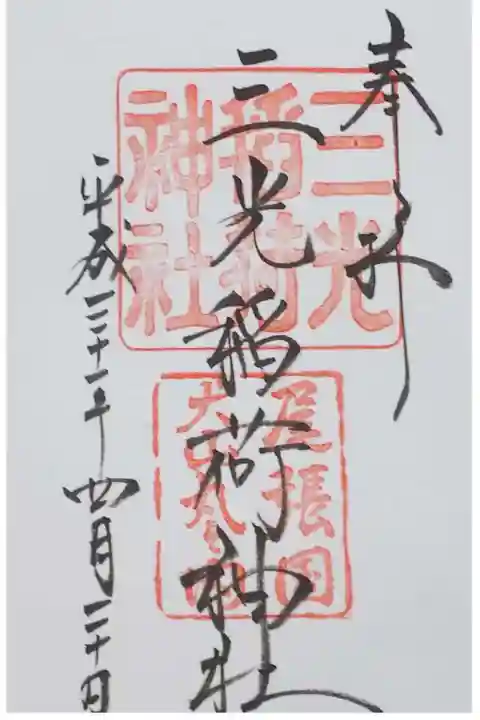 奉拝
三光
稲荷
神社
三光稲荷神社
尾張国
平成三十一年四月二十日